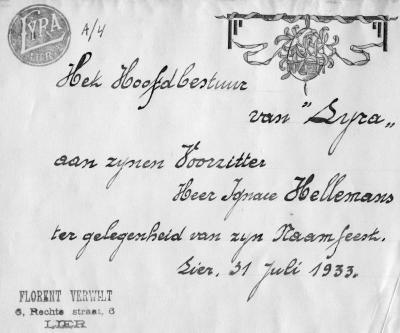 LYRA
LIER
A/4
Het Hoofdbestuur
van "Lyra"
aan zynen Voorzitter
Heer Ignace Hellemans
ter gelegenheid van zyn Naamfeest.
Lier, 31 Juli 1933.
FLORENT VERWILT
6, Rechte straat, 6
LIER